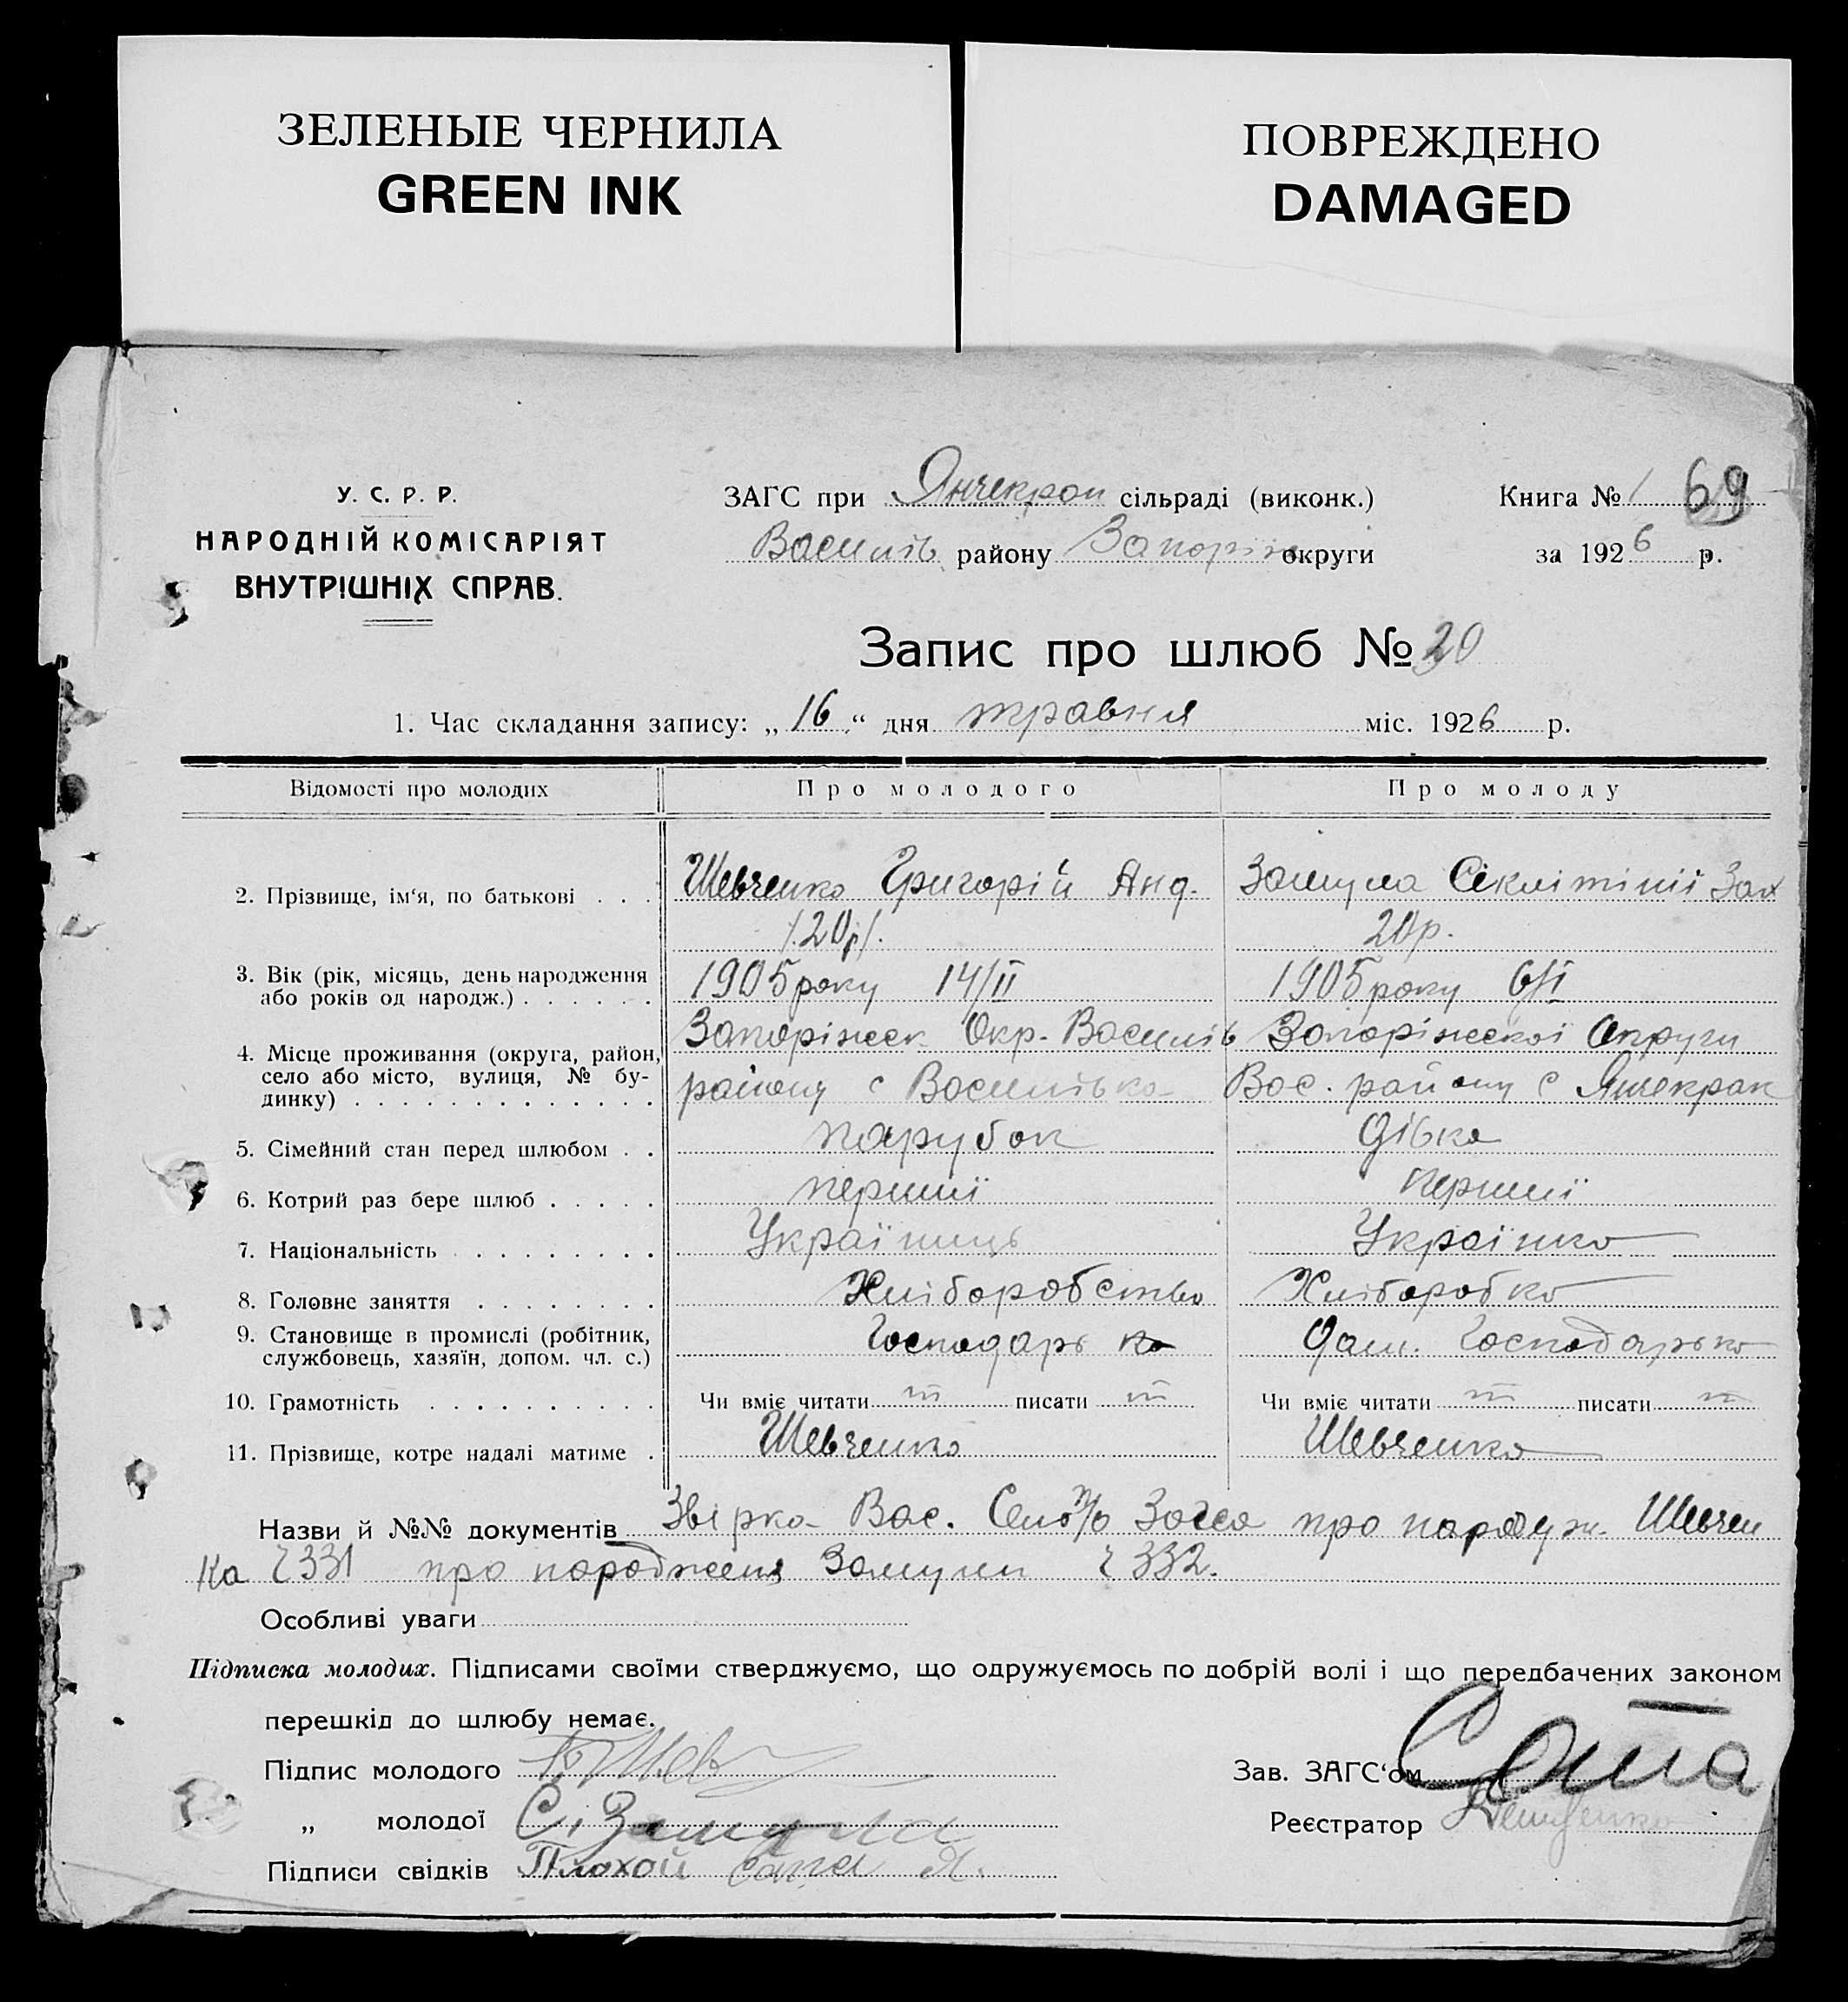 ЗЕЛЕНЫЕ ЧЕРНИЛА
GREEN INK
ПОВРЕЖДЕНО
DAMAGED
У. С. Р. Р.
НАРОДНІЙ КОМІСАРІЯТ
ВНУТРІШНІХ СПРАВ.
ЗАГС при Янчекрак сільраді (виконк.)
Василів району Запоріж округи
Книга № 1 69
за 1926 р.
Запис про шлюб № 20
1. Час складання запису: „16“ дня травня міс. 1926 р.
Відомості про молодих Про молодого Про молоду
2. Прізвище, ім'я, по батькові . . . Шевченко Григорій Анд. Зашула Зах
/20р/. 20р.
3. Вік (рік, місяць, день народження
або років од народж.) . . . . . . 1905 року 14/II 1905 року 6/I
4. Місце проживання (округа, район,
село або місто, вулиця, № бу-
динку) . . . . . . . . . . . . .
Запоріжск Окр. Василів Запоріжскої Округи
району с Василівка Вас. району с Янчекрак
5. Сімейний стан перед шлюбом . . парубок дівка
6. Котрий раз бере шлюб . . . . . перший перший
7. Національність . . . . . . . . . Українець Українка
8. Головне заняття . . . . . . . . Хліборобство Хліборобка
9. Становище в промислі (робітник,
службовець, хазяїн, допом. чл. с.) Господарь ка Дом. Господарька
10. Грамотність . . . . . . . . . . Чи вміє читати писати Чи вміє читати писати
11. Прізвище, котре надалі матиме . Шевченко Шевченко
Назви й №№ документів Звірка Вас. Загса про народж. Шевчен
ка ч 331 про народженя Зашули ч 332.
Особливі уваги
Підписка молодих. Підписами своїми стверджуємо, що одружуємось по добрій волі і що передбачених законом
перешкід до шлюбу немає.
Підпис молодого Шев
„ молодої С. Зашула
Підписи свідків Плохой
Зав. ЗАГС'ом
Реєстратор